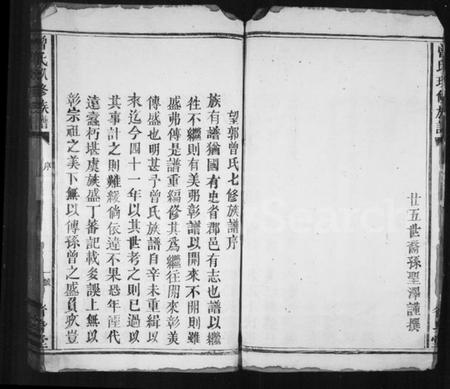 廿五世裔孫聖澤謹撰
望郭曾氏七修族譜序
族有譜猶國有史省郡邑有志也譜以繼
徃不繼則有美弗彰譜以開來不開則雖
盛弗傳是譜重編修其爲繼徃開來彰美
傳盛也明甚予曾氏族譜自辛未重緝以
來迄今四十一年以其世考之則已過以
其事計之則難緩倘依違不果恐年湮代
遠蠹朽堪虞族盛丁番記載多誤上無以
彰宗祖之美下無以傳孫曾之盛負疚豈
曾氏 修族譜
序